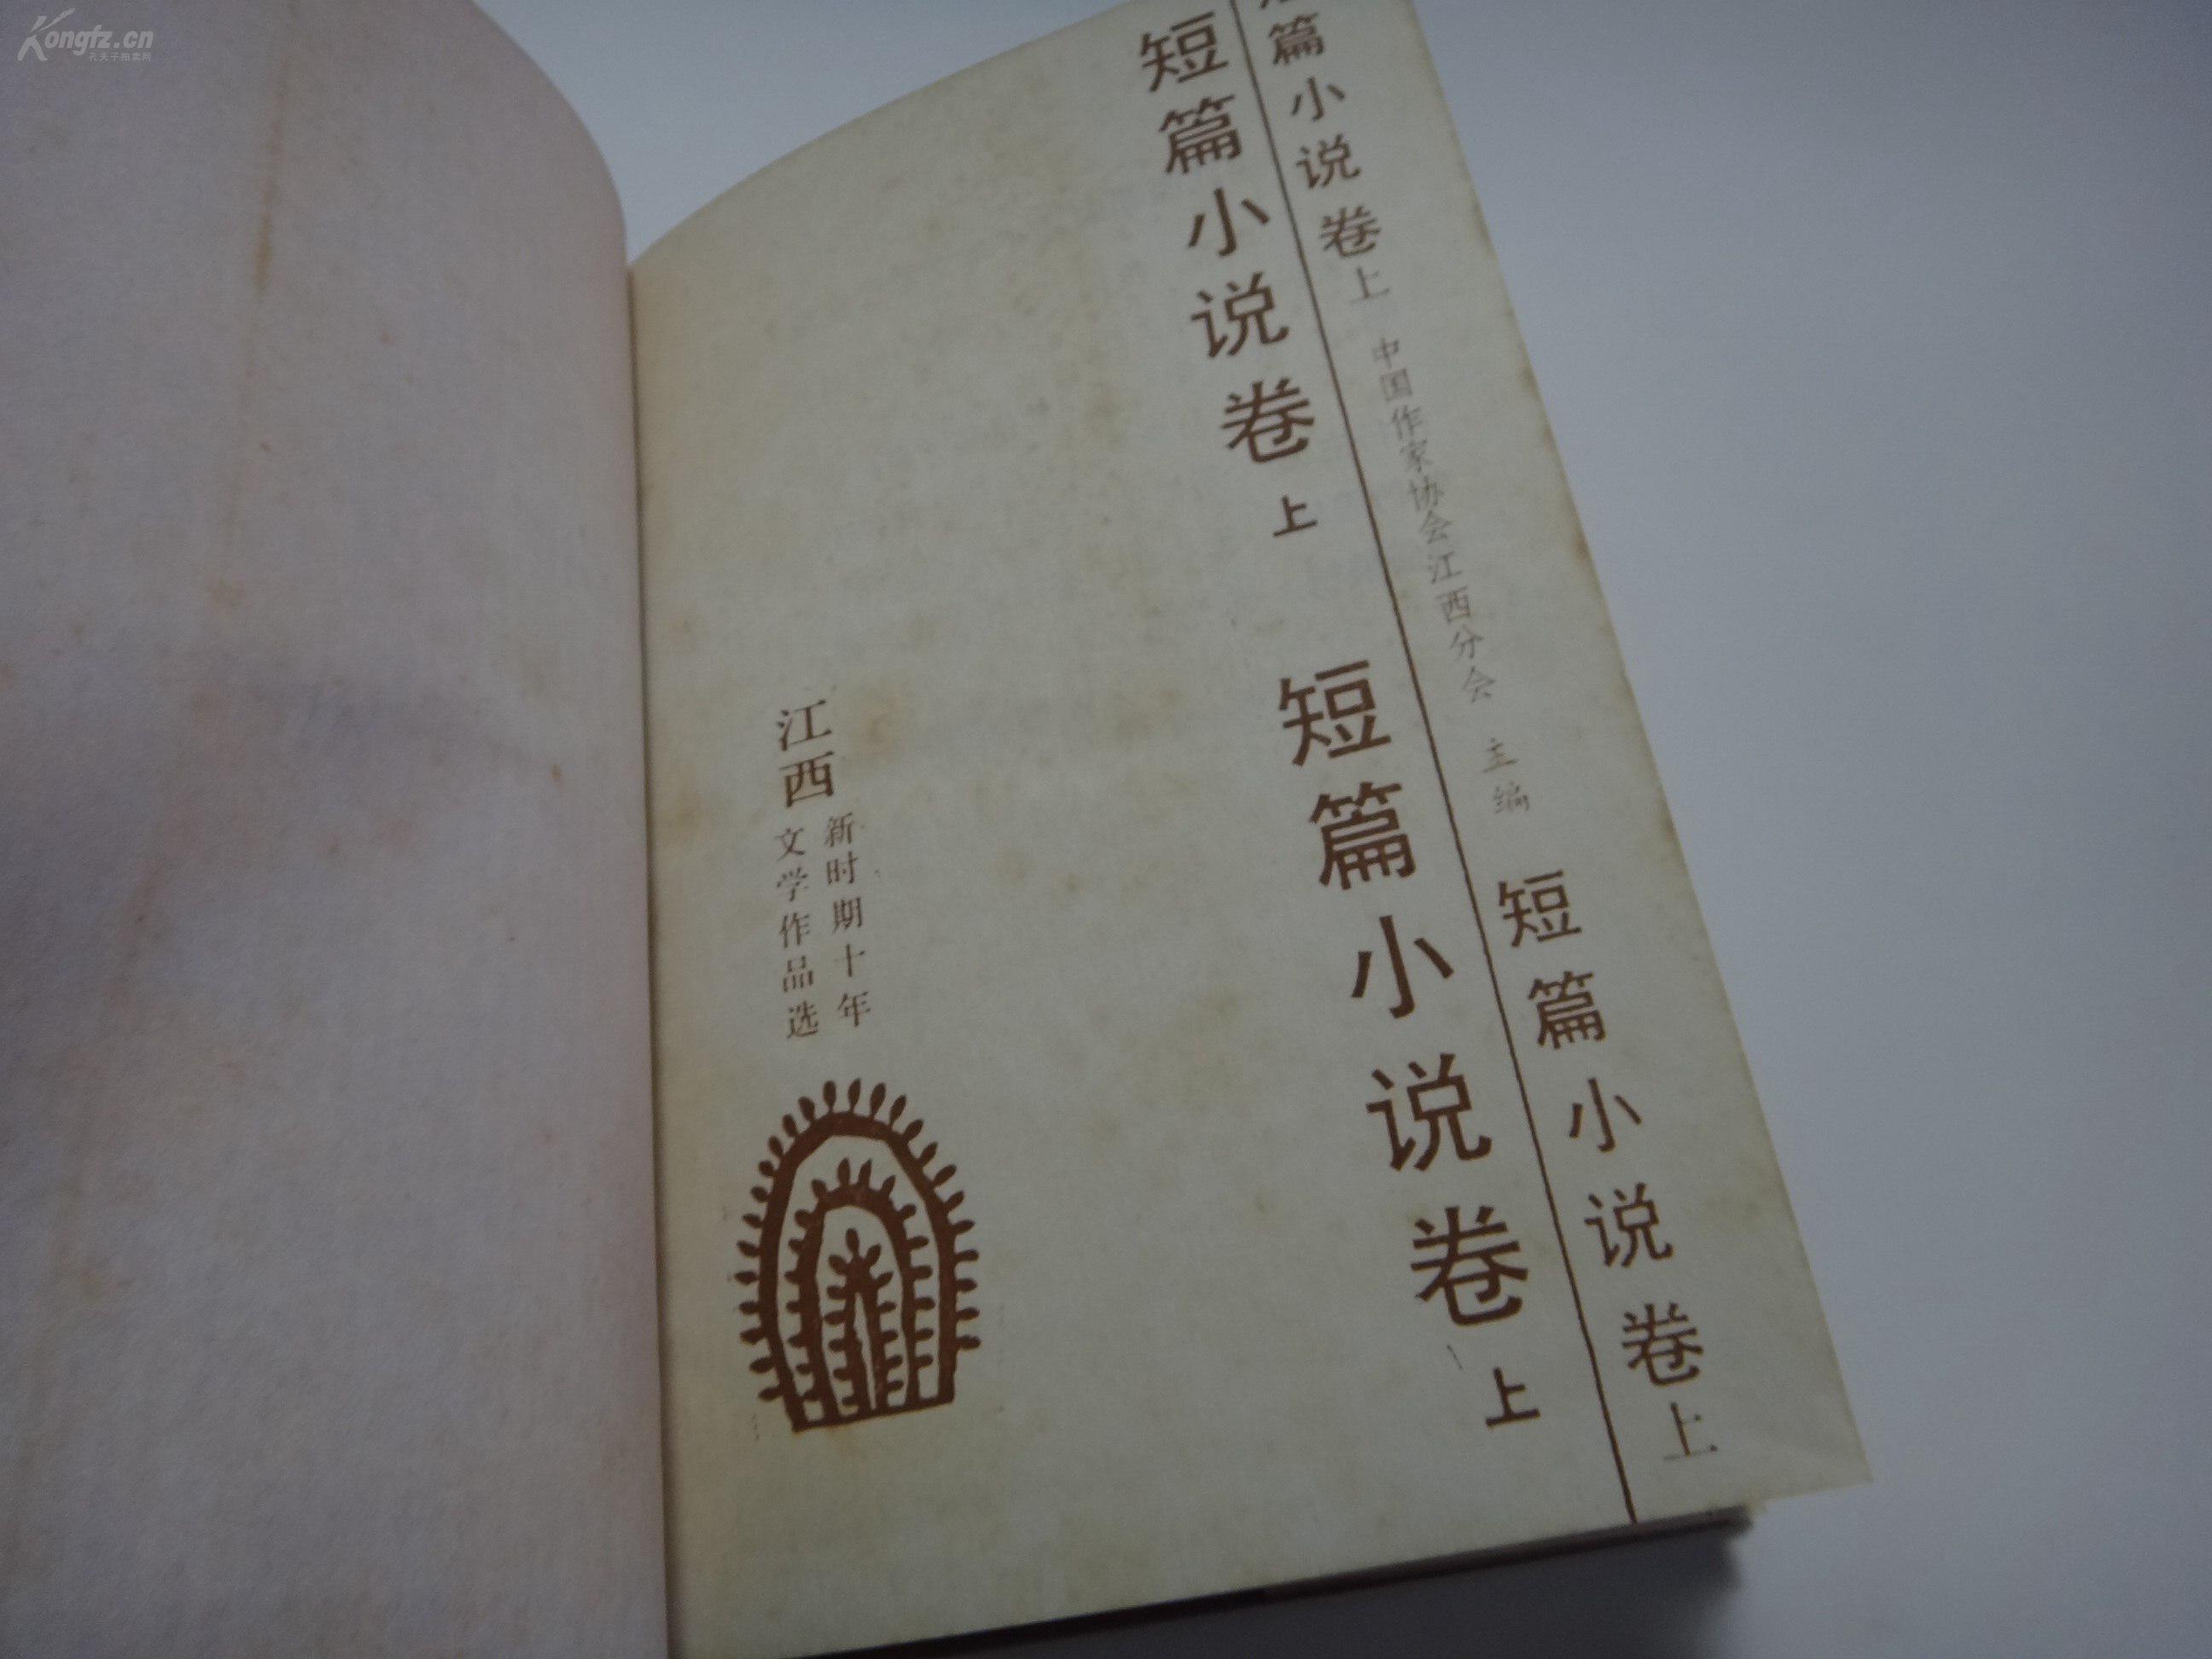 Kongfz.cn
孔夫子拍卖网
篇小说卷上
中国作家协会江西分会 主编
短篇小说卷上
短篇小说卷 上
短篇小说卷 上
江西
新时期十年
文学作品选